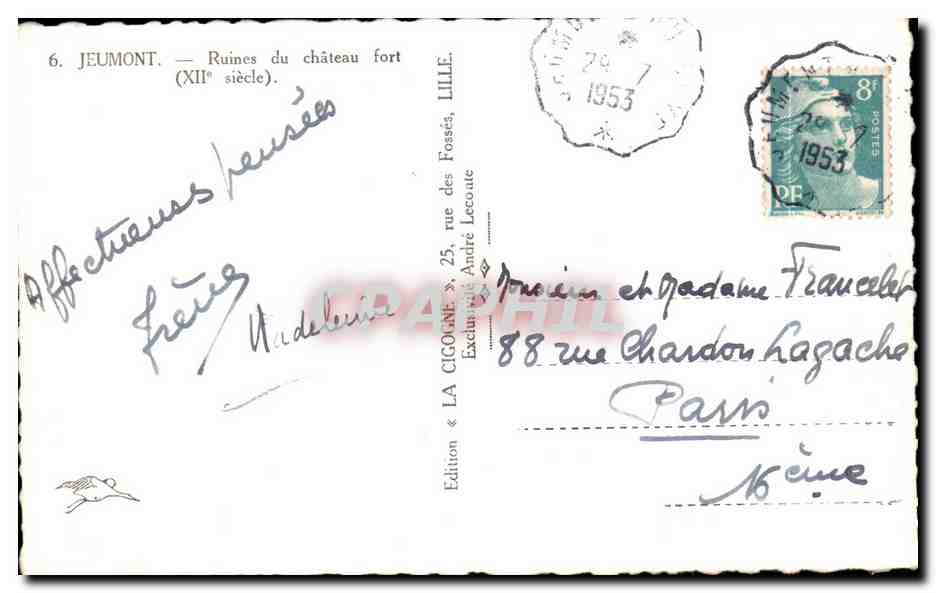 6. JEUMONT. — Ruines du château fort
(XIIe siècle).
Affectueuses pensées
Madeleine
Edition « LA CIGOGNE », 25, rue des Fossés, LILLE.
Exclusivité André Leconte
29 - 7
1953
JEUMONT
29 - 7
1953
8f
POSTES
RF
Monsieur et Madame Francelet
88 rue Chardon Lagache
Paris
16ème
CPAPHIL